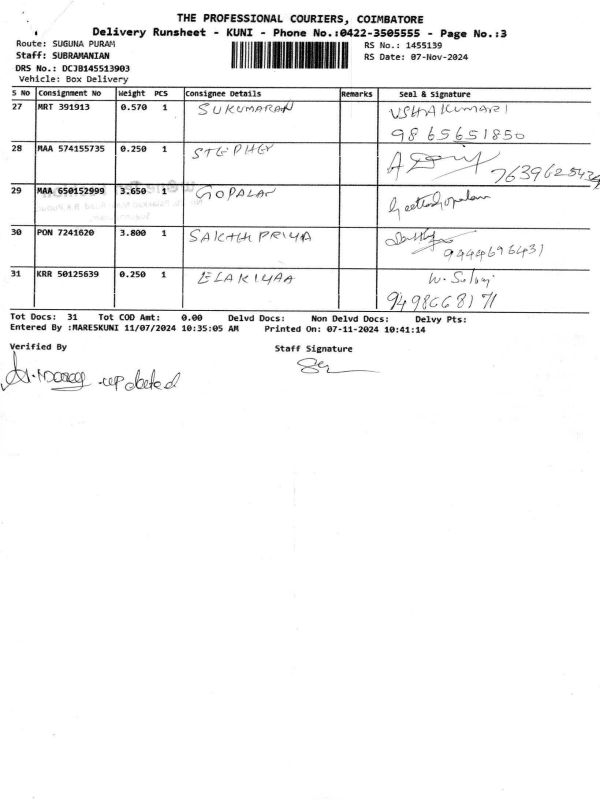 THE PROFESSIONAL COURIERS, COIMBATORE
Delivery Runsheet - KUNI - Phone No.:0422-3505555 - Page No.:3
Route: SUGUNA PURAM RS No.: 1455139
Staff: SUBRAMANIAN RS Date: 07-Nov-2024
DRS No.: DCJB145513903
Vehicle: Box Delivery
S No Consignment No Weight PCS Consignee Details Remarks Seal & Signature
27 MRT 391913 0.570 1 SUKUMARAN USHA KUMARI
9865651850
28 MAA 574155735 0.250 1 STEPHEY
29 MAA 650152999 3.650 1 GOPALAN Geetha Gopalan
30 PON 7241620 3.800 1 SAKTHI PRIYA
9444696431
31 KRR 50125639 0.250 1 ELAKIYAA
9498668171
Tot Docs: 31 Tot COD Amt: 0.00 Delvd Docs: Non Delvd Docs: Delvy Pts:
Entered By :MARESKUNI 11/07/2024 10:35:05 AM Printed On: 07-11-2024 10:41:14
Verified By Staff Signature
updated